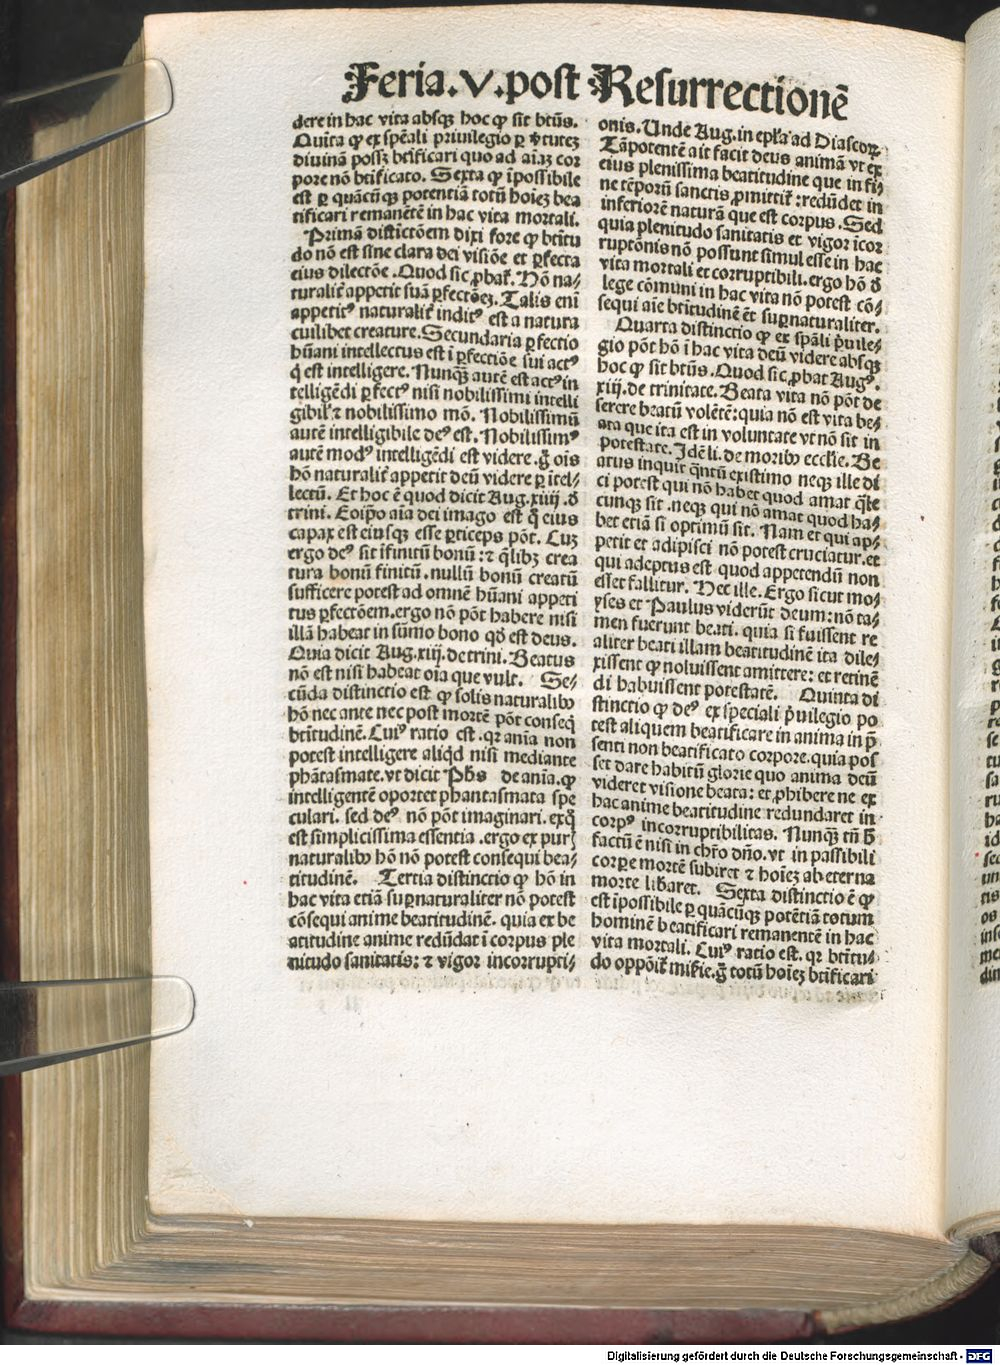 Feria.V.post Resurrectionē
dere in hac vita absqꝫ hoc ꝙ sit btūs.
Quīta ꝙ ex spēali priuilegio ꝑ ꝟtuteꝫ
diuinā possꝫ btificari quo ad aīaꝫ cor
pore nō btificato. Sexta ꝙ īpossibile
est ꝑ quācūqꝫ potentiā totū hoīeꝫ bea
tificari remanētē in hac vita mortali.
Primā distictōem dixi fore ꝙ btitu
do nō est sine clara dei visiōe et ꝑfecta
eius dilectōe .Quod sic ꝓbat᷑. Hō na-
turalit᷑ appetit suā ꝑfectōeꝫ. Talis enī
appetitꝰ naturalit᷑ inditꝰ est a natura
cuilibet creature. Secundaria ꝑfectio
hūani intellectus est ī ꝑfectiōe sui actꝰ
q̇ est intelligere. Nunqꝫ autē est actꝰ in
telligēdi ꝑfectꝰ nisi nobilissimi intelli
gibil᷑ ⁊ nobilissimo mō. Nobilissimū
autē intelligibile deꝰ est. Nobilissimꝰ
autē modꝰ intelligēdi est videre .g̊ oīs
hō naturalit᷑ appetit deū videre ꝑ ītel⸗
lectū. Et hoc ē quod dicit Aug. xiiij. ꝺ
trini. Eoip̄o aīa dei imago est q̇ eius
capax est eiusqꝫ esse ꝑticeps pōt. Cuꝫ
ergo deꝰ sit īfinitū bonū: ⁊ q̄libꝫ crea
tura bonū finitū .nullū bonū creatū
sufficere potest ad omnē hūani appeti
tus ꝑfectōem .ergo nō pōt habere nisi
illā habeat in sūmo bono qd̄ est deus.
Quia dicit Aug. xiij. de trini. Beatus
nō est nisi habeat oīa que vult. Se⸗
cūda distinctio est ꝙ solis naturalibꝰ
hō nec ante nec post mortē pōt conseq̇
btitudinē. Cuiꝰ ratio est .qꝛ anīa non
potest intelligere aliqd nisi mediante
phātasmate .vt dicit Phs de anīa. ꝙ
intelligentē oportet phantasmata spe
culari. sed deꝰ nō pōt imaginari. exq̇
est simplicissima essentia .ergo ex puris
naturalibꝰ hō nō potest consequi bea⸗
titudinē. Tertia distinctio ꝙ hō in
hac vita etiā suꝑnaturaliter nō potest
cōsequi anime beatitudinē. quia ex be
atitudine anime redūdat ī corpus ple
nitudo sanitatis: ⁊ vigor incorrupti⸗
onis. Unde Aug. in epl̄a ad Diascoꝝ.
Tāpotentē ait facit deus animā vt ex
eius plenissima beatitudine que in fi⸗
ne tēporū sanctis ꝓmittit᷑ :redūdet in
inferiorē naturā que est corpus .Sed
quia plenitudo sanitatis et vigor īcor
ruptōnis nō possunt simul esse in hac
vita mortali et corruptibili .ergo hō ꝺ
lege cōmuni in hac vita nō potest cō⸗
sequi aīe btitudinē ēt suꝑnaturaliter.
Quarta distinctio ꝙ ex spāli p̄uile⸗
gio pōt hō ī hac vita deū videre absqꝫ
hoc ꝙ sit btūs .Quod sic ꝓbat Augꝰ.
xiij. de trinitate. Beata vita nō pōt de
serere beatū volētē: quia nō est vita be⸗
ata que ita est in voluntate vt nō sit in
potestate. Idē li. de moribꝰ ecclie. Be
atus inquit q̄ntū existimo neqꝫ ille di
ci potest qui nō habet quod amat q̄le
cunqꝫ sit .neqꝫ qui nō amat quod ha⸗
bet etiā si optimū sit. Nam et qui ap⸗
petit et adipisci nō potest cruciatur .et
qui adeptus est quod appetendū non
esset fallitur. Hec ille. Ergo sicut mo⸗
yses et Paulus viderūt deum: nō ta⸗
men fuerunt beati. quia si fuissent re
aliter beati illam beatitudinē ita dile⸗
xissent ꝙ noluissent amittere: et retinē
di habuissent potestatē. Quinta di
stinctio ꝙ deꝰ ex speciali p̄uilegio po
test aliquem beatificare in anima in p̄
senti non beatificato corpore .quia pos
set dare habitū glorie quo anima deū
videret visione beata: et ꝓhibere ne ex
hac anime beatitudine redundaret in
corpꝰ incorruptibilitas. Nunqꝫ tn̄ ħ
factū ē nisi in chr̄o dño .vt in passibili
corpore mortē subiret ⁊ hoīeꝫ ab eterna
morte libaret. Sexta distinctio ē ꝙ
est īpossibile ꝑ quācūqꝫ potētiā totum
hominē beatificari remanentē in hac
vita mortali. Cuiꝰ ratio est .qꝛ btitu⸗
do oppōit᷑ miſie .g̊ totū hoīeꝫ btificari
Digitalisierung gefördert durch die Deutsche Forschungsgemeinschaft - DFG